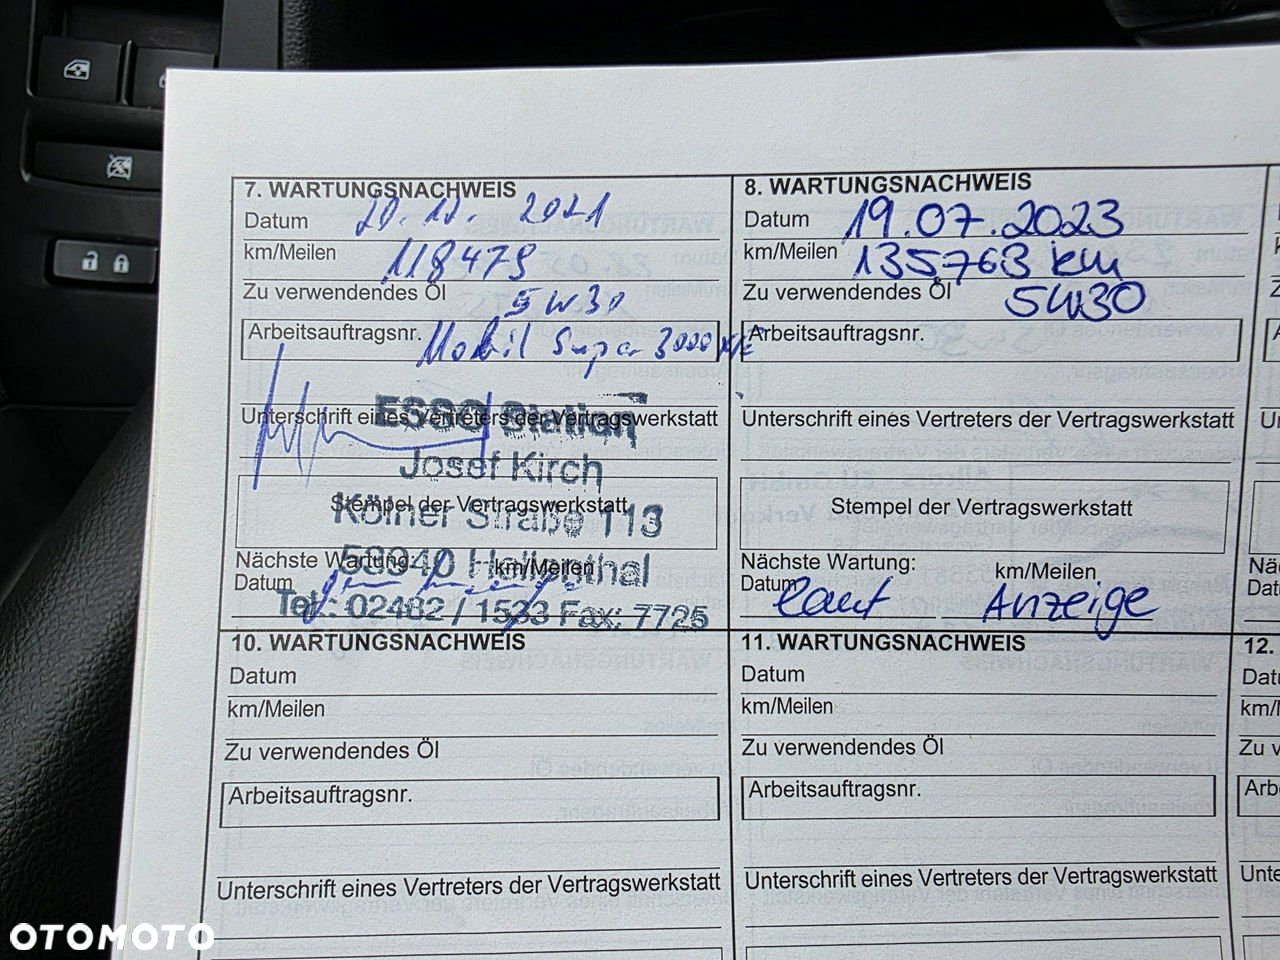 7. WARTUNGSNACHWEIS
Datum 20.12.2021
km/Meilen 118479
Zu verwendendes Öl 5W30
Arbeitsauftragsnr. Mobil Super 3000
Unterschrift eines Vertreters der Vertragswerkstatt
ESSO Station
Josef Kirch
Stempel der Vertragswerkstatt
Kölner Straße 113
Nächste Wartung: km/Meilen
53940 Hellenthal
Datum
Tel.: 02482 / 1533 Fax: 7725
8. WARTUNGSNACHWEIS
Datum 19.07.2023
km/Meilen 135763 km
Zu verwendendes Öl 5W30
Arbeitsauftragsnr.
Unterschrift eines Vertreters der Vertragswerkstatt
Stempel der Vertragswerkstatt
Nächste Wartung: km/Meilen
Datum laut Anzeige
10. WARTUNGSNACHWEIS
Datum
km/Meilen
Zu verwendendes Öl
Arbeitsauftragsnr.
Unterschrift eines Vertreters der Vertragswerkstatt
11. WARTUNGSNACHWEIS
Datum
km/Meilen
Zu verwendendes Öl
Arbeitsauftragsnr.
Unterschrift eines Vertreters der Vertragswerkstatt
12.
OTOMOTO